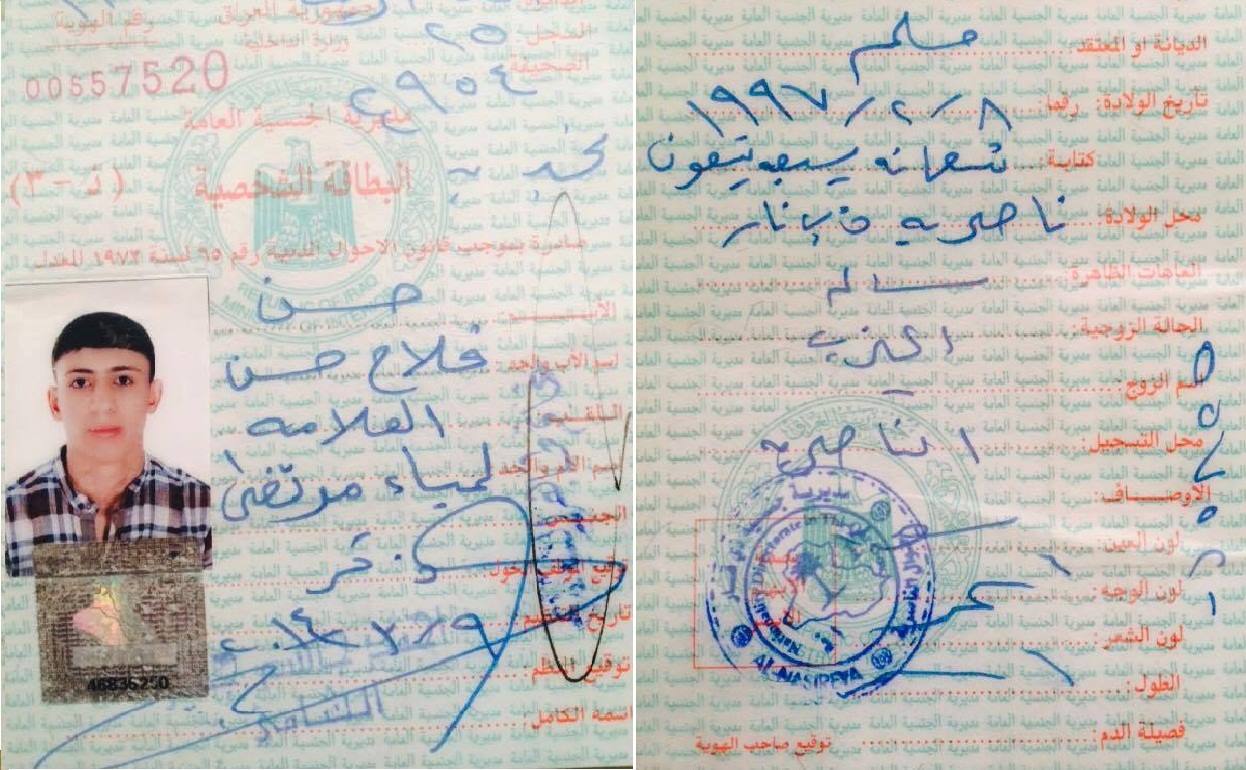 جمهورية العراق
رقم الهوية
وزارة الداخلية
السجل ٢٥
الصحيفة ٤٩٠٥٤
00557520
مديرية الجنسية العامة
البطاقة الشخصية (ذ - ٣)
صادرة بموجب قانون الاحوال المدنية رقم ٦٥ لسنة ١٩٧٢ المعدل
REPUBLIC OF IRAQ
الاسم حسن
اسم الاب والجد فلاح حسن
اللقب العلامه
اسم الام والجد لمياء مرتضى
الجنس ذكر
تاريخ التنظيم ٢٠١٤/٧/٩
توقيع المنظم
اسمه الكامل:
46836250
الديانة او المعتقد مسلم
تاريخ الولادة: رقما ١٩٩٧/٢/٨
كتابة
محل الولادة ناصريه ذي قار
العاهات الظاهرة: سالم
الحالة الزوجية: اعزب
اسم الزوج:
محل التسجيل: الناصريه
الاوصاف:
لون العين:
لون الوجه:
لون الشعر:
الطول:
AL-NASIREYA
فصيلة الدم:
توقيع صاحب الهوية